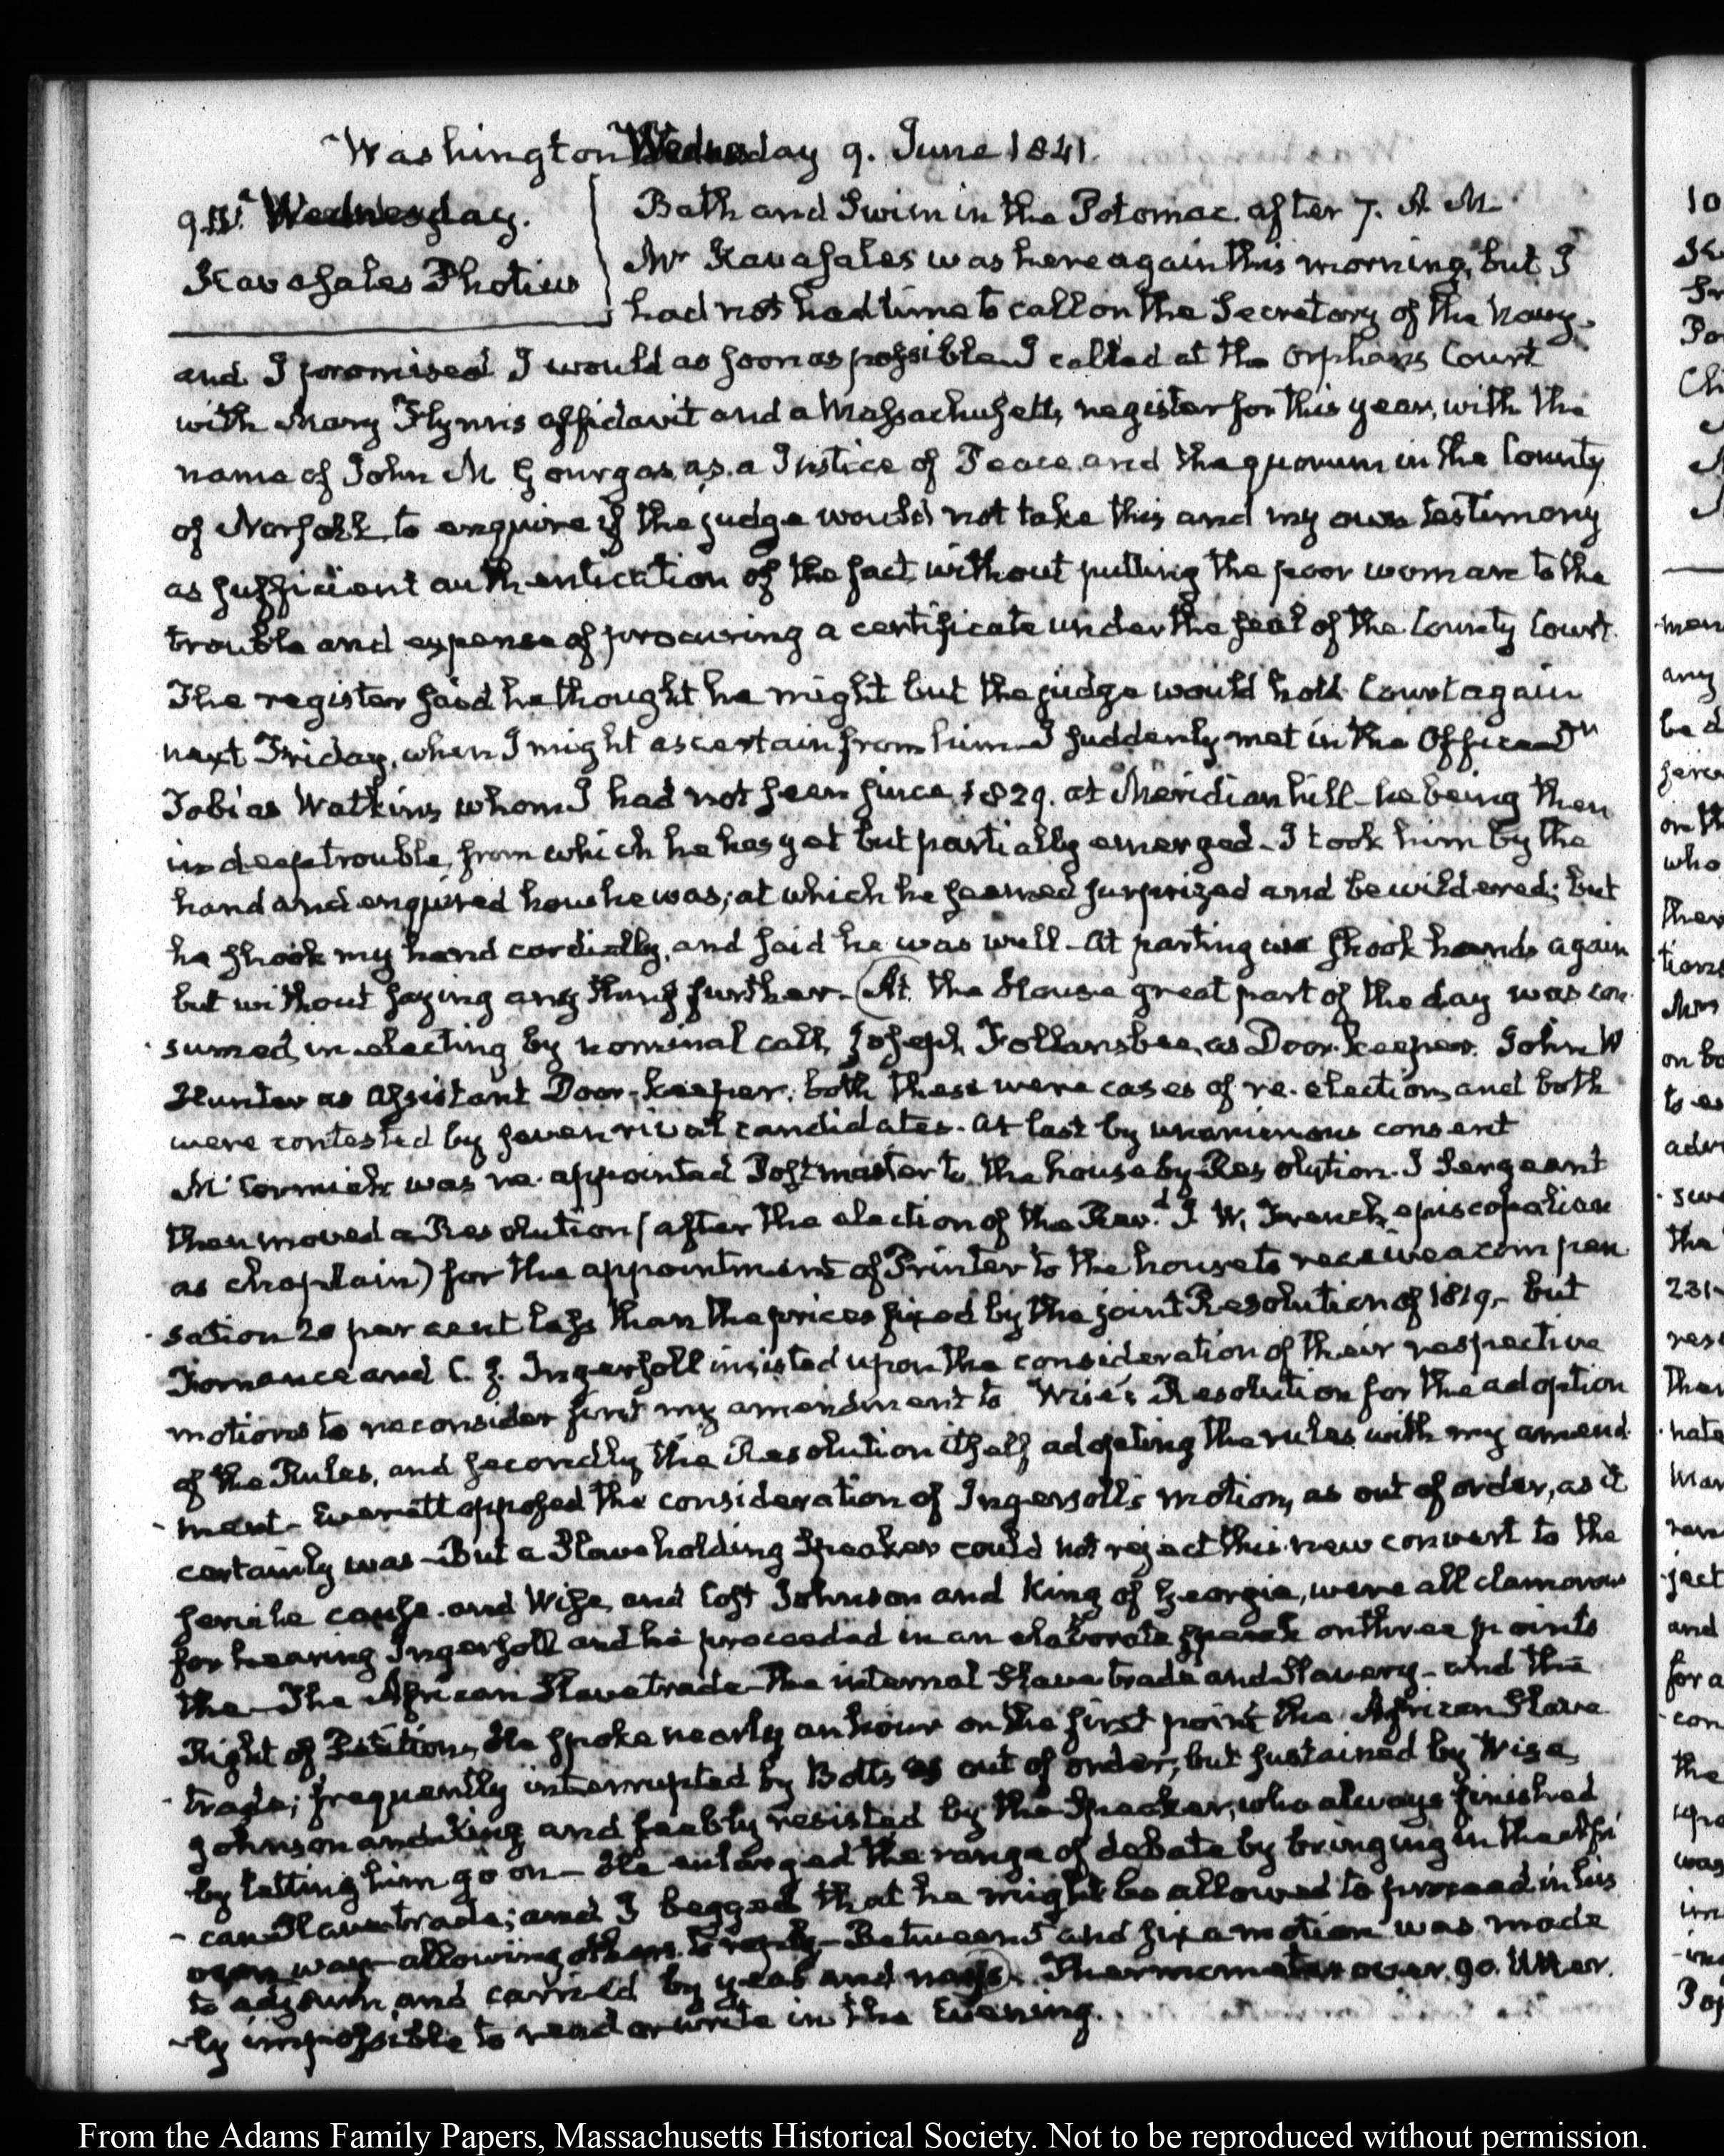 Washington Wednesday 9. June 1841.
9. IV. Wednesday.
Kavasales Photius
Bath and Swim in the Potomac after 7. A.M.
Mr Kavasales was here again this morning, but I
had not had time to call on the Secretary of the Navy,
and I promised I would as soon as possible I called at the Orphans Court
with Mary Flynn's affidavit and a Massachusetts register for this year, with the
name of John M Gourgas, as a Justice of Peace and the quorum in the County
of Norfolk, to enquire if the judge would not take this and my own testimony
as sufficient authentication of the fact, without putting the poor woman to the
trouble and expense of procuring a certificate under the seal of the County Court.
The register said he thought he might but the judge would hold Court again
next Friday, when I might ascertain from him I suddenly met in the Office Dr
Tobias Watkins whom I had not seen since 1829. at Meridian hill – he being then
in deep trouble, from which he has yet but partially emerged – I took him by the
hand and enquired how he was; at which he seemed surprized and bewildered; but
he shook my hand cordially, and said he was well – At parting we shook hands again
but without saying any thing further – At the House great part of the day was con
sumed, in electing by nominal call, Joseph Follansbee, as Door-keeper. John W
Hunter as Assistant Door-keeper. both these were cases of re-election, and both
were contested by seven rival candidates. At last by unanimous consent
McCormick was re-appointed Postmaster to the house by Resolution. J Sergeant
then moved a Resolution (after the election of the Revd J. W. French, episcopalian
as chaplain) for the appointment of Printer to the house to receive a compen
sation 20 per cent less than the prices fixed by the joint Resolution of 1819, – but
Fornance and C. J. Ingersoll insisted upon the consideration of their respective
motions to reconsider first my amendment to Wise's Resolution for the adoption
of the Rules, and secondly the Resolution itself adopting the rules with my amend
ment – Everett opposed the consideration of Ingersoll's motion, as out of order, as it
certainly was – But a Slave holding Speaker could not reject this new convert to the
servile cause. and Wise, and Cost Johnson and King of Georgia, were all clamorous
for hearing Ingersoll and he proceeded in an elaborate speech on three points
the – The African Slave trade – The internal Slave trade and Slavery – and the
Right of Petition, He spoke nearly an hour on the first point the African Slave
trade; frequently interrupted by Botts as out of order, but sustained by Wise,
Johnson and King, and feebly resisted by the Speaker, who always finished
by letting him go on – He enlarged the range of debate by bringing in the Afri
can Slave trade; and I begged that he might be allowed to proceed in his
own way – allowing others to reply – Between 5 and six a motion was made
to adjourn and carried by yeas and nays. Thermometer over 90. Utter
ly impossible to read or write in the Evening.
From the Adams Family Papers, Massachusetts Historical Society. Not to be reproduced without permission.